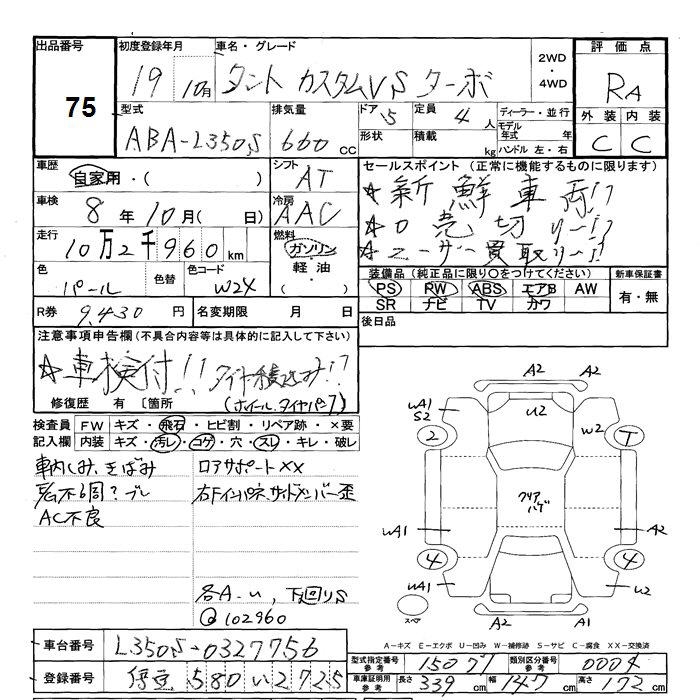 出品番号 初度登録年月 車名・グレード 2WD・4WD 評価点
75 19 10月 タント カスタムVS ターボ RA
型式 排気量 ドア 定員 ディーラー・並行 外装 内装
ABA-L350S 660 cc 5 4人 モデル年式 年 C C
形状 積載 kg ハンドル 左・右
車歴 シフト セールスポイント (正常に機能するものに限ります)
自家用・( ) AT ☆新鮮車両!!
車検 冷房
8年10月( 日) AAC ☆ロ売切りー!!
走行 燃料
10万2千960km ガソリン・軽油・( ) ☆ユーザー買取りー!!
色 色替 色コード 装備品(純正品に限り○をつけてください) 新車保証書
パール W24 PS PW ABS エアB AW 有・無
SR ナビ TV カワ
R券 9,430円 名変期限 月 日 後日品
注意事項申告欄(不具合内容等は具体的に記入して下さい)
☆車検付!! タイヤ積込み!!
修復歴 有 〔箇所 (ホイール、タイヤパンク)
検査員 FW キズ・飛石・ヒビ割・リペア跡・×要
記入欄 内装 キズ・汚レ・コゲ・穴・スレ・キレ・破レ
車内しみ、きばみ ロアサポートXX
右Fインパネ、サイドメンバー歪
AC不良
各A-U, 下回りS
@102960
A2 A2
WA1 S2 U2 W2
2 T
クリアハゲ
WA1 A2
4 4
WA1 U2
スペア A2 A1
A-キズ E-エクボ U-凹み W-補修跡 S-サビ C-腐食 XX-交換済
車台番号 L350S-0327756
型式指定番号参考 15077 類別区分番号参考 0004
登録番号 伊豆 580 い 2725
車庫証明用参考 長さ 339cm 幅 147cm 高さ 172cm